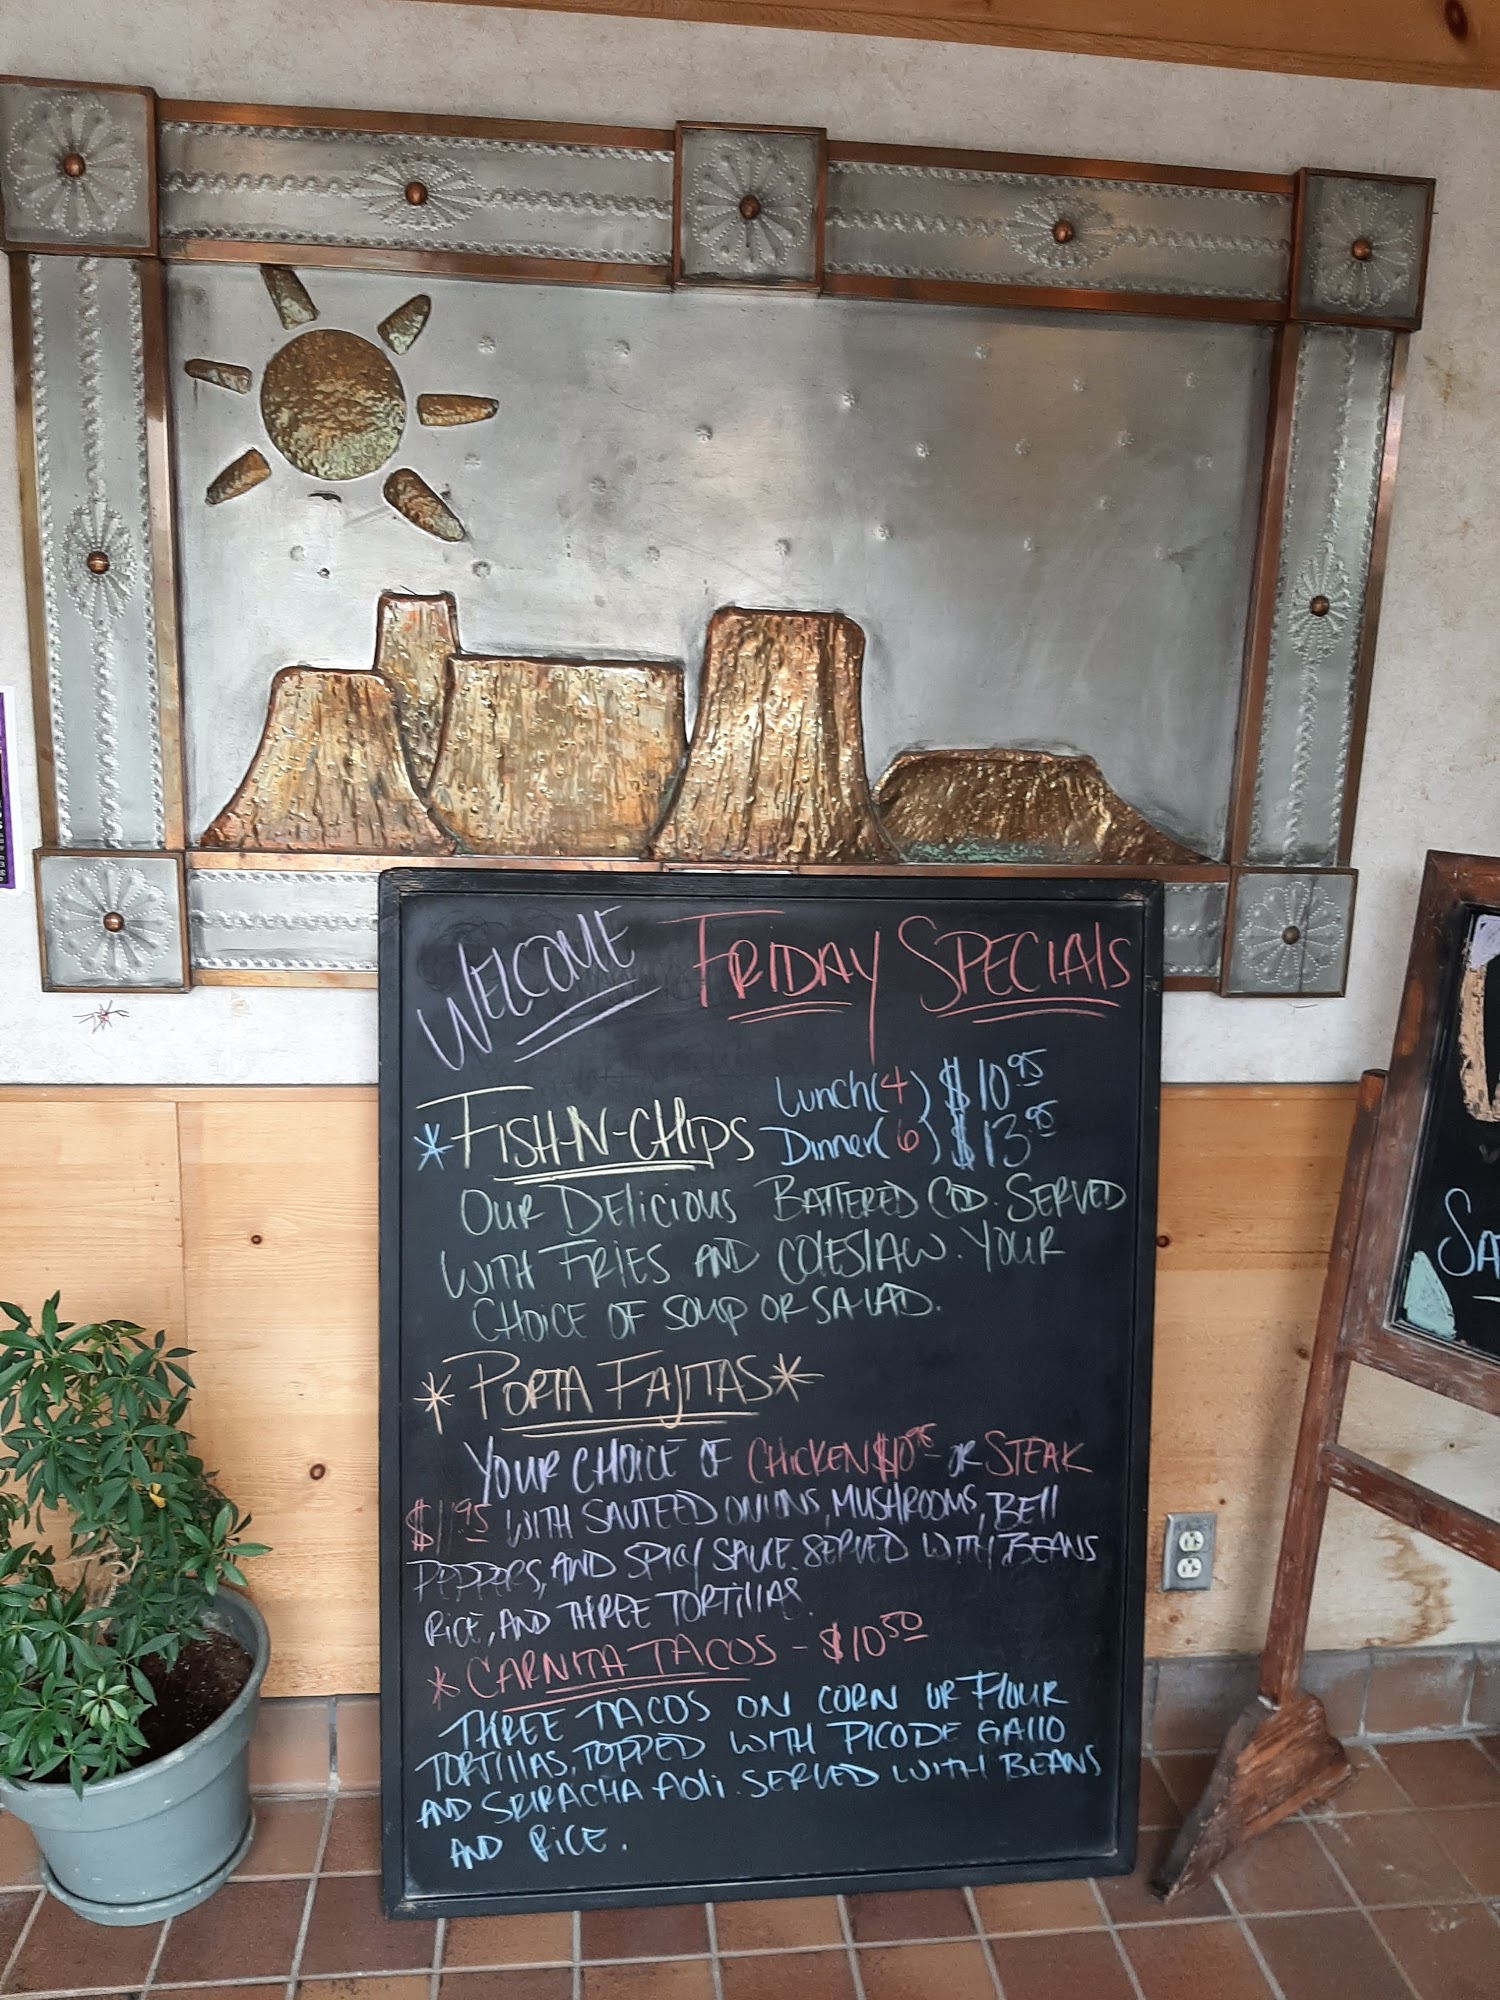 WELCOME FRIDAY SPECIALS
* FISH-N-CHIPS Lunch(4) $10.95
Dinner(6) $13.95
OUR DELICIOUS BATTERED COD. SERVED
WITH FRIES AND COLESLAW. YOUR
CHOICE OF SOUP OR SALAD.
* PORTA FAJITAS *
YOUR CHOICE OF CHICKEN $10.95 OR STEAK
$11.95 WITH SAUTEED ONIONS, MUSHROOMS, BELL
PEPPERS, AND SPICY SAUCE. SERVED WITH BEANS
RICE, AND THREE TORTILLAS.
* CARNITA TACOS - $10.50
THREE TACOS ON CORN OR FLOUR
TORTILLAS, TOPPED WITH PICO DE GALLO
AND SRIRACHA AOLI. SERVED WITH BEANS
AND RICE.
SA